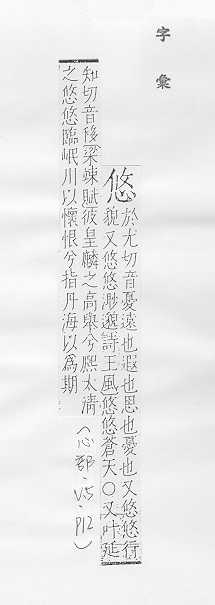 字彙
悠
於尤切音憂遠也遐也思也憂也又悠悠行
貌又悠悠渺邈詩王風悠悠蒼天○又叶延
知切音移梁竦賦彼皇麟之高舉兮熙太清
之悠悠臨岷川以懷恨兮指丹海以爲期
(心部·V.5·P12)